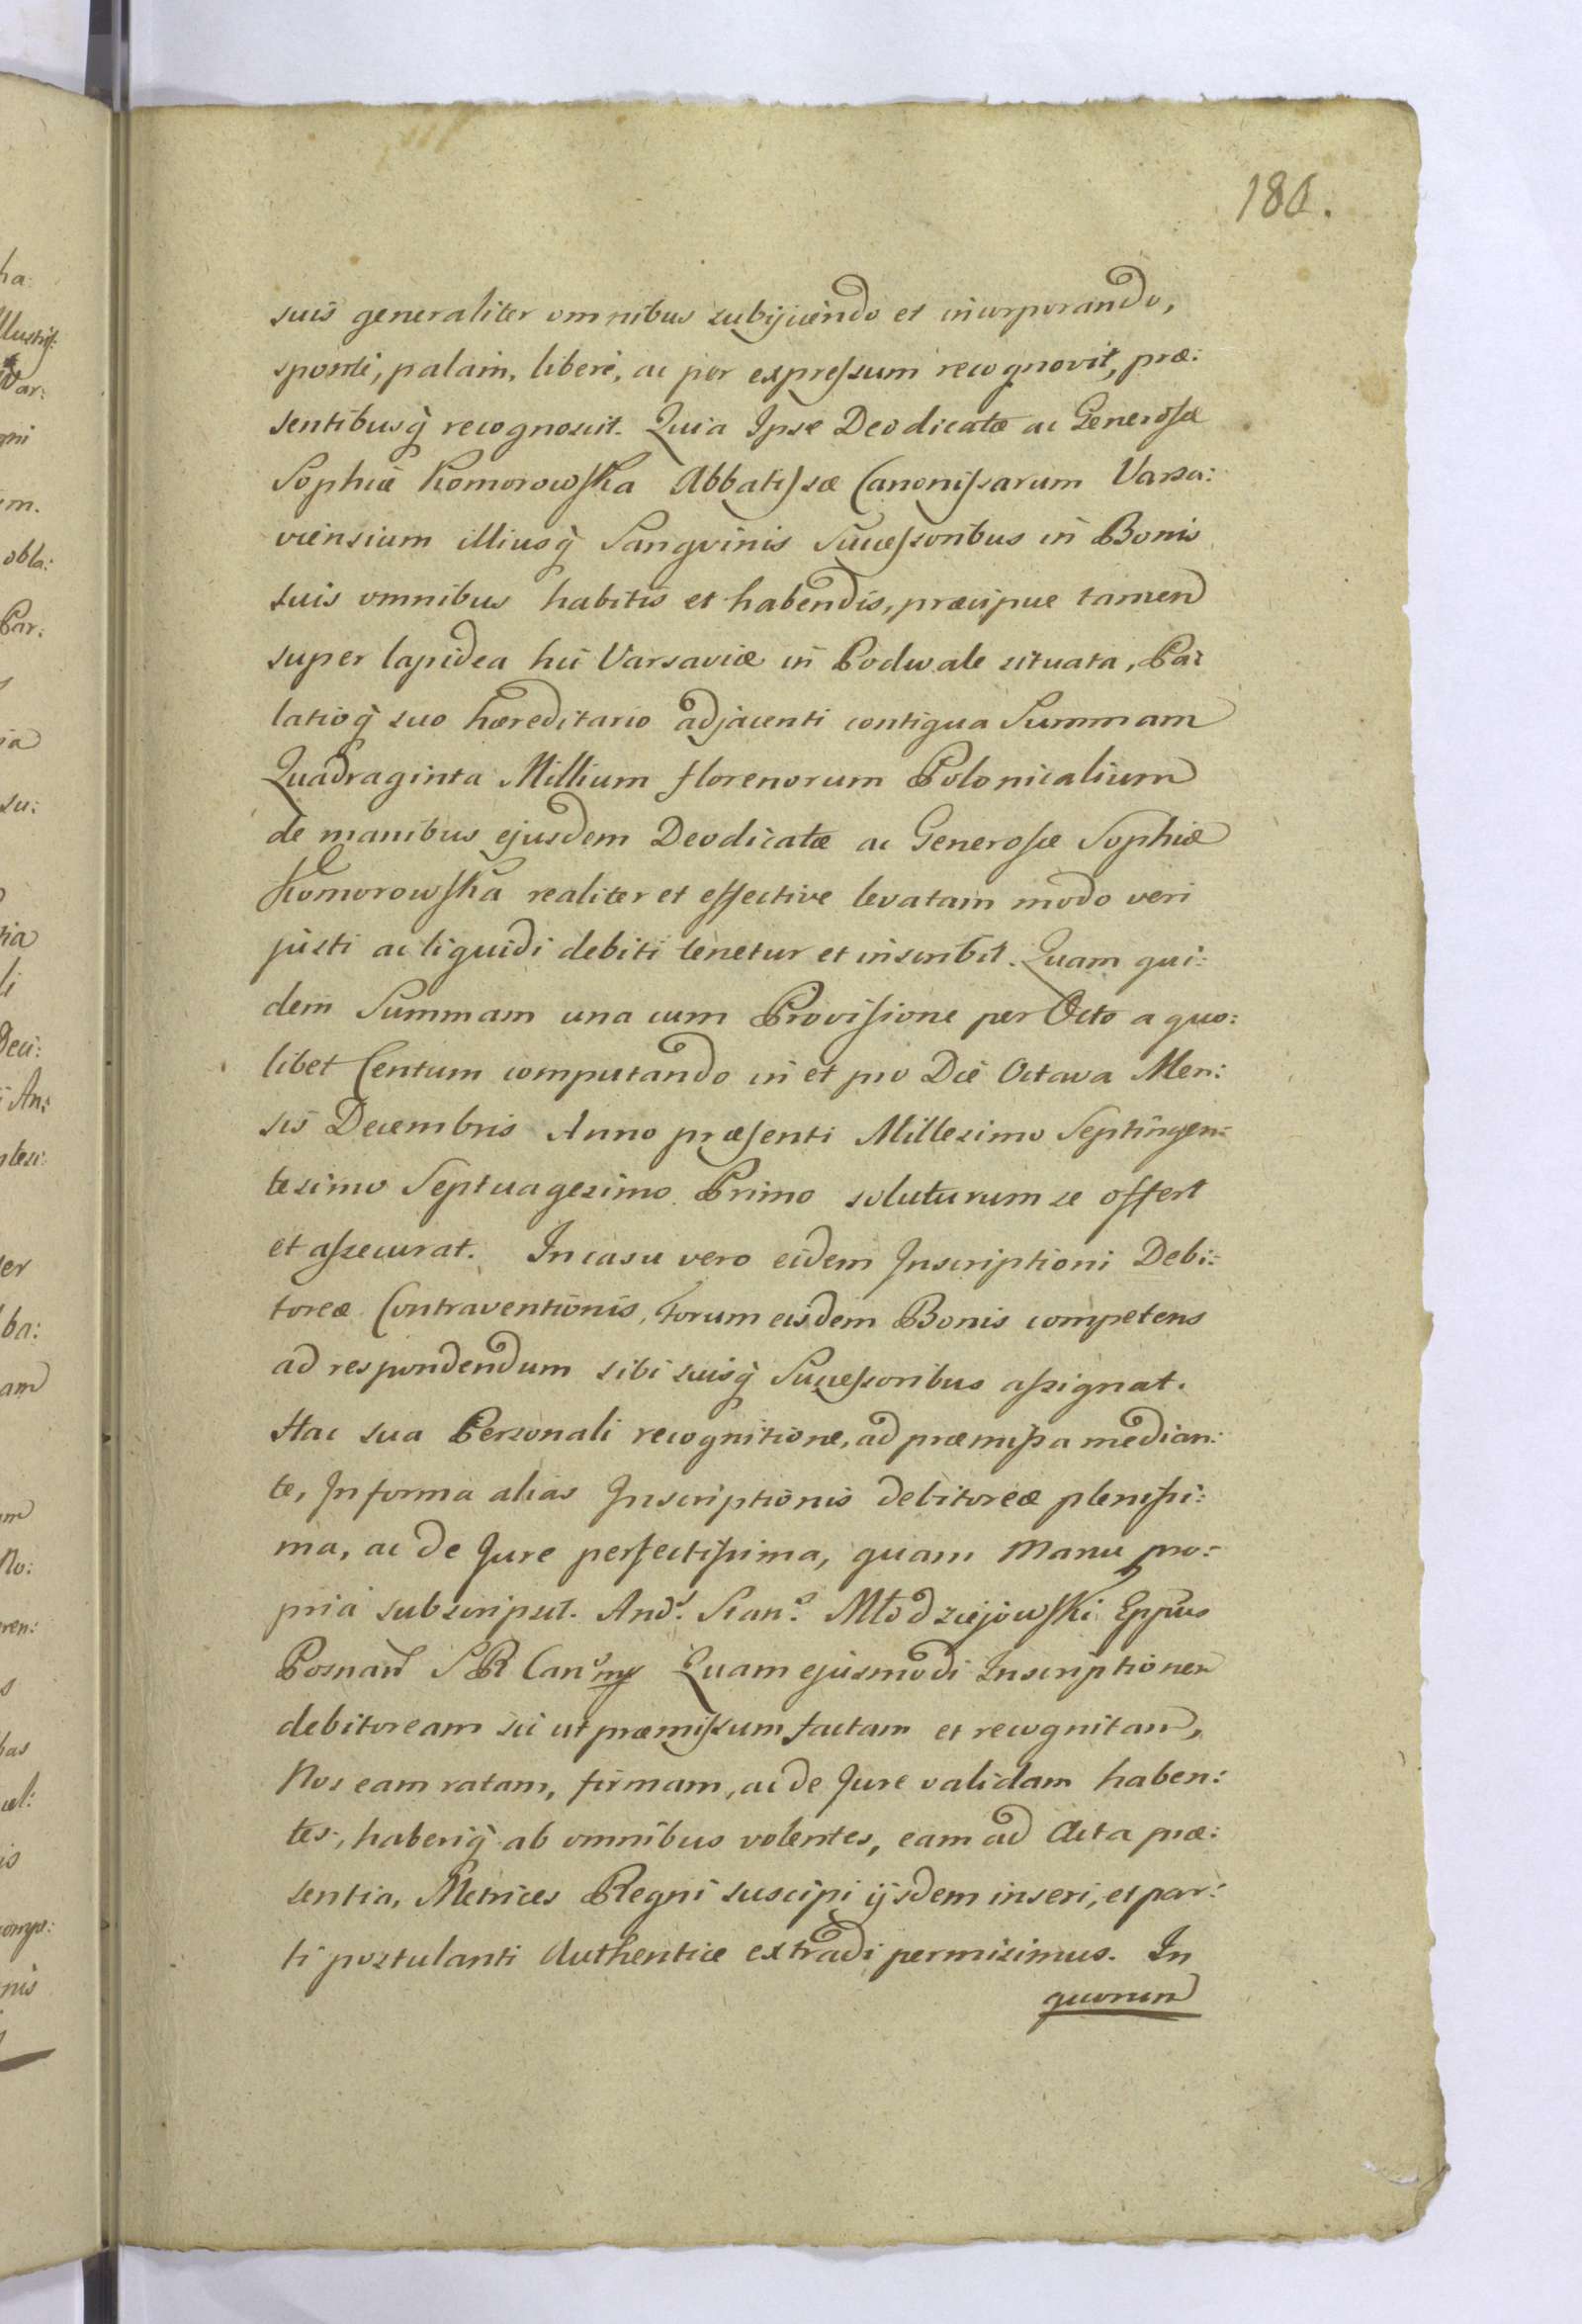 181.
suis generaliter omnibus subijiciendo et incorporando,
sponte, palam, libere, ac per expressum recognovit, præ:
sentibusq̀ recognoscit. Quia Ipse Deodicatæ ac Generosæ
Sophiæ Komorowska Abbatissæ Canonissarum Varsa:
viensium illiusq̀ Sangvinis Successoribus in Bonis
suis omnibus habitis et habendis, præcipue tamen
super lapidea hic Varsaviæ in Podwale situata, Pa:
latioq̀ suo hæreditario adjacenti contigua Summam
Quadraginta Millium florenorum Polonicalium
de manibus ejusdem Deodicatæ ac Generosæ Sophiæ
Komorowska realiter et effective levatam modo veri
justi ac liquidi debiti tenetur et inscribit. Quam qui:
dem Summam una cum Provisione per Octo a quo:
libet Centum computando in et pro Die Octava Men:
sis Decembris Anno præsenti Millesimo Septingen:
tesimo Septuagesimo Primo soluturum se offert
et assecurat. In casu vero eidem Inscriptioni Debi:
toreæ Contraventionis, Forum eisdem Bonis competens
ad respondendum sibi suisq̀ Successoribus assignat.
Hac sua Personali recognitione, ad præmissa median:
te, In forma alias Inscriptionis debitoreæ plenissi:
ma, ac de Jure perfectissima, quam Manu pro:
pria subscripsit. And: Stan: Młodziejowski Eppus
Posnan S R Can: mp Quam ejusmodi Inscriptionem
debitoream sic ut præmissum factam et recognitam,
Nos eam ratam, firmam, ac de Jure validam haben:
tes, haberiq̀ ab omnibus volentes, eam ad Acta præ:
sentia, Metrices Regni suscipi ijsdem inseri, et par:
ti postulanti Authentice extradi permisimus. In
quorum